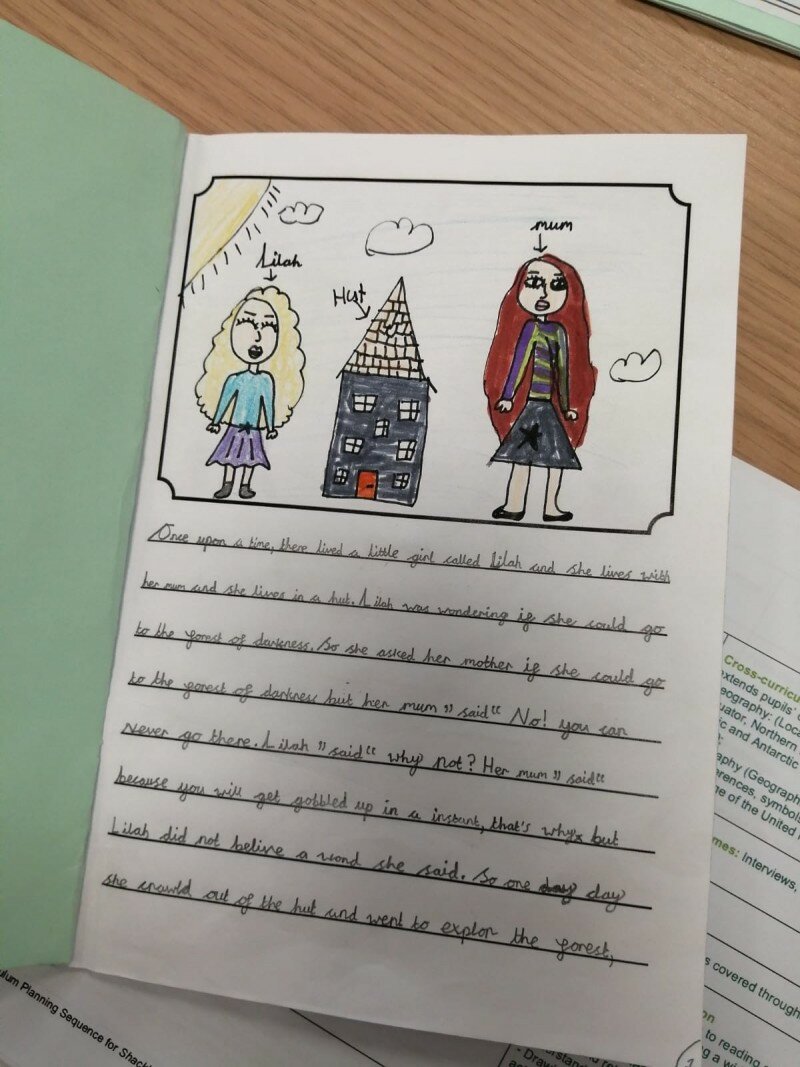 Lilah
Hut
mum
Once upon a time, there lived a little girl called Lilah and she lives with
her mum and she lives in a hut. Lilah was wondering if she could go
to the forest of darkness. So she asked her mother if she could go
to the forest of darkness but her mum " said " No! you can
never go there. Lilah " said " why not? Her mum " said "
because you will get gobbled up in a instant, that's why. but
Lilah did not belive a word she said. So one day
she crawld out of the hut and went to explor the forest,
1
Cross-curricu
extends pupils'
eography: (Loca
uator, Northern
ic and Antarctic
aphy (Geograph
erences, symbols
e of the United
mes: Interviews,
s covered through
on
to reading
ulum Planning Sequence for Shack